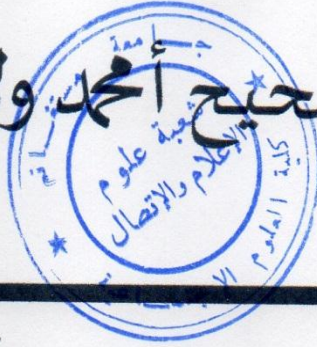 حيح أمحمد و
جامعة مستغانم
كلية العلوم الاجتماعية
شعبة علوم
الإعلام والإتصال